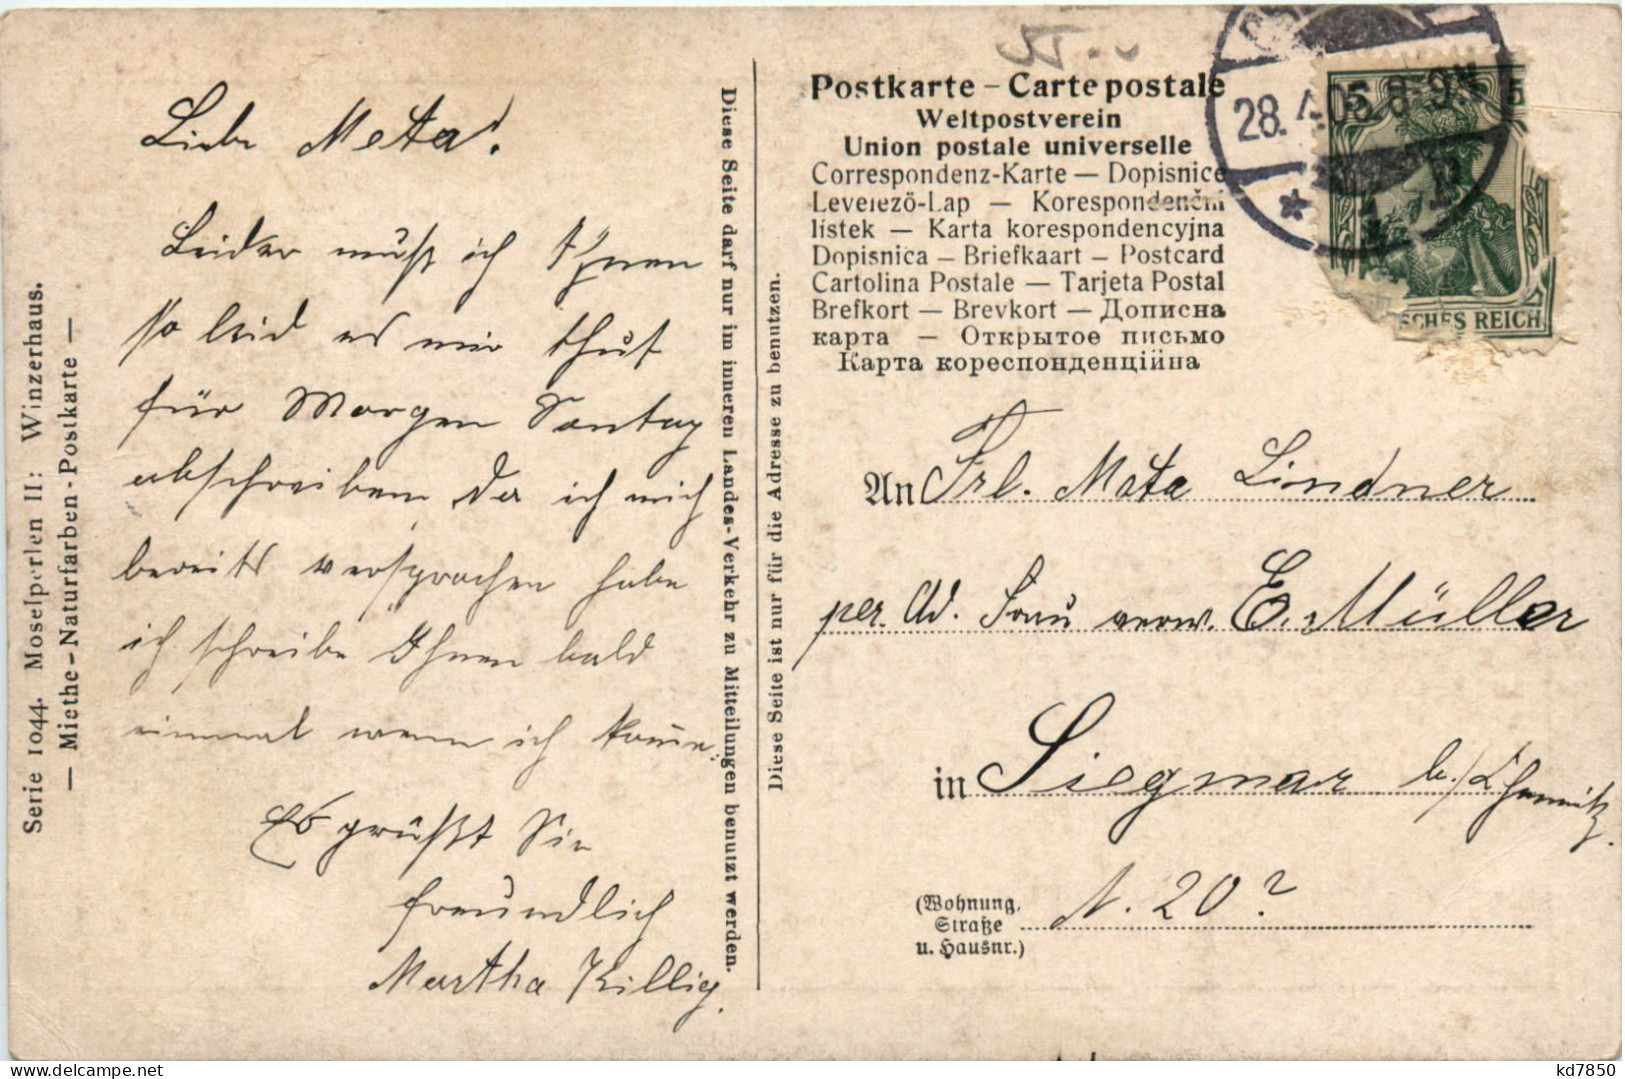 Serie 1044. Moselperlen II: Winzerhaus.
— Miethe-Naturfarben-Postkarte —
Liebe Meta!
Leider muß ich Ihnen
so leid es mir thut
für Morgen Sontag
abschreiben da ich mich
bereits versprochen habe
ich schreibe Ihnen bald
einmal wenn ich komme.
Es grüßt Sie
freundlich
Martha Killig.
Diese Seite darf nur im inneren Landes-Verkehr zu Mitteilungen benutzt werden.
Diese Seite ist nur für die Adresse zu benutzen.
Postkarte – Carte postale
Weltpostverein
Union postale universelle
Correspondenz-Karte — Dopisnice
Levelező-Lap — Korespondenční
lístek — Karta korespondencyjna
Dopisnica — Briefkaart — Postcard
Cartolina Postale — Tarjeta Postal
Brefkort — Brevkort — Дописна
карта — Открытое письмо
Карта кореспонденційна
28. 05. 8-9 N
5 5
SCHES REICH
An Frl. Meta Lindner
per. Ad. Frau verw. E. Müller
in Siegmar b./Chemnitz.
(Wohnung, Straße u. Hausnr.) N. 20?
kd7850